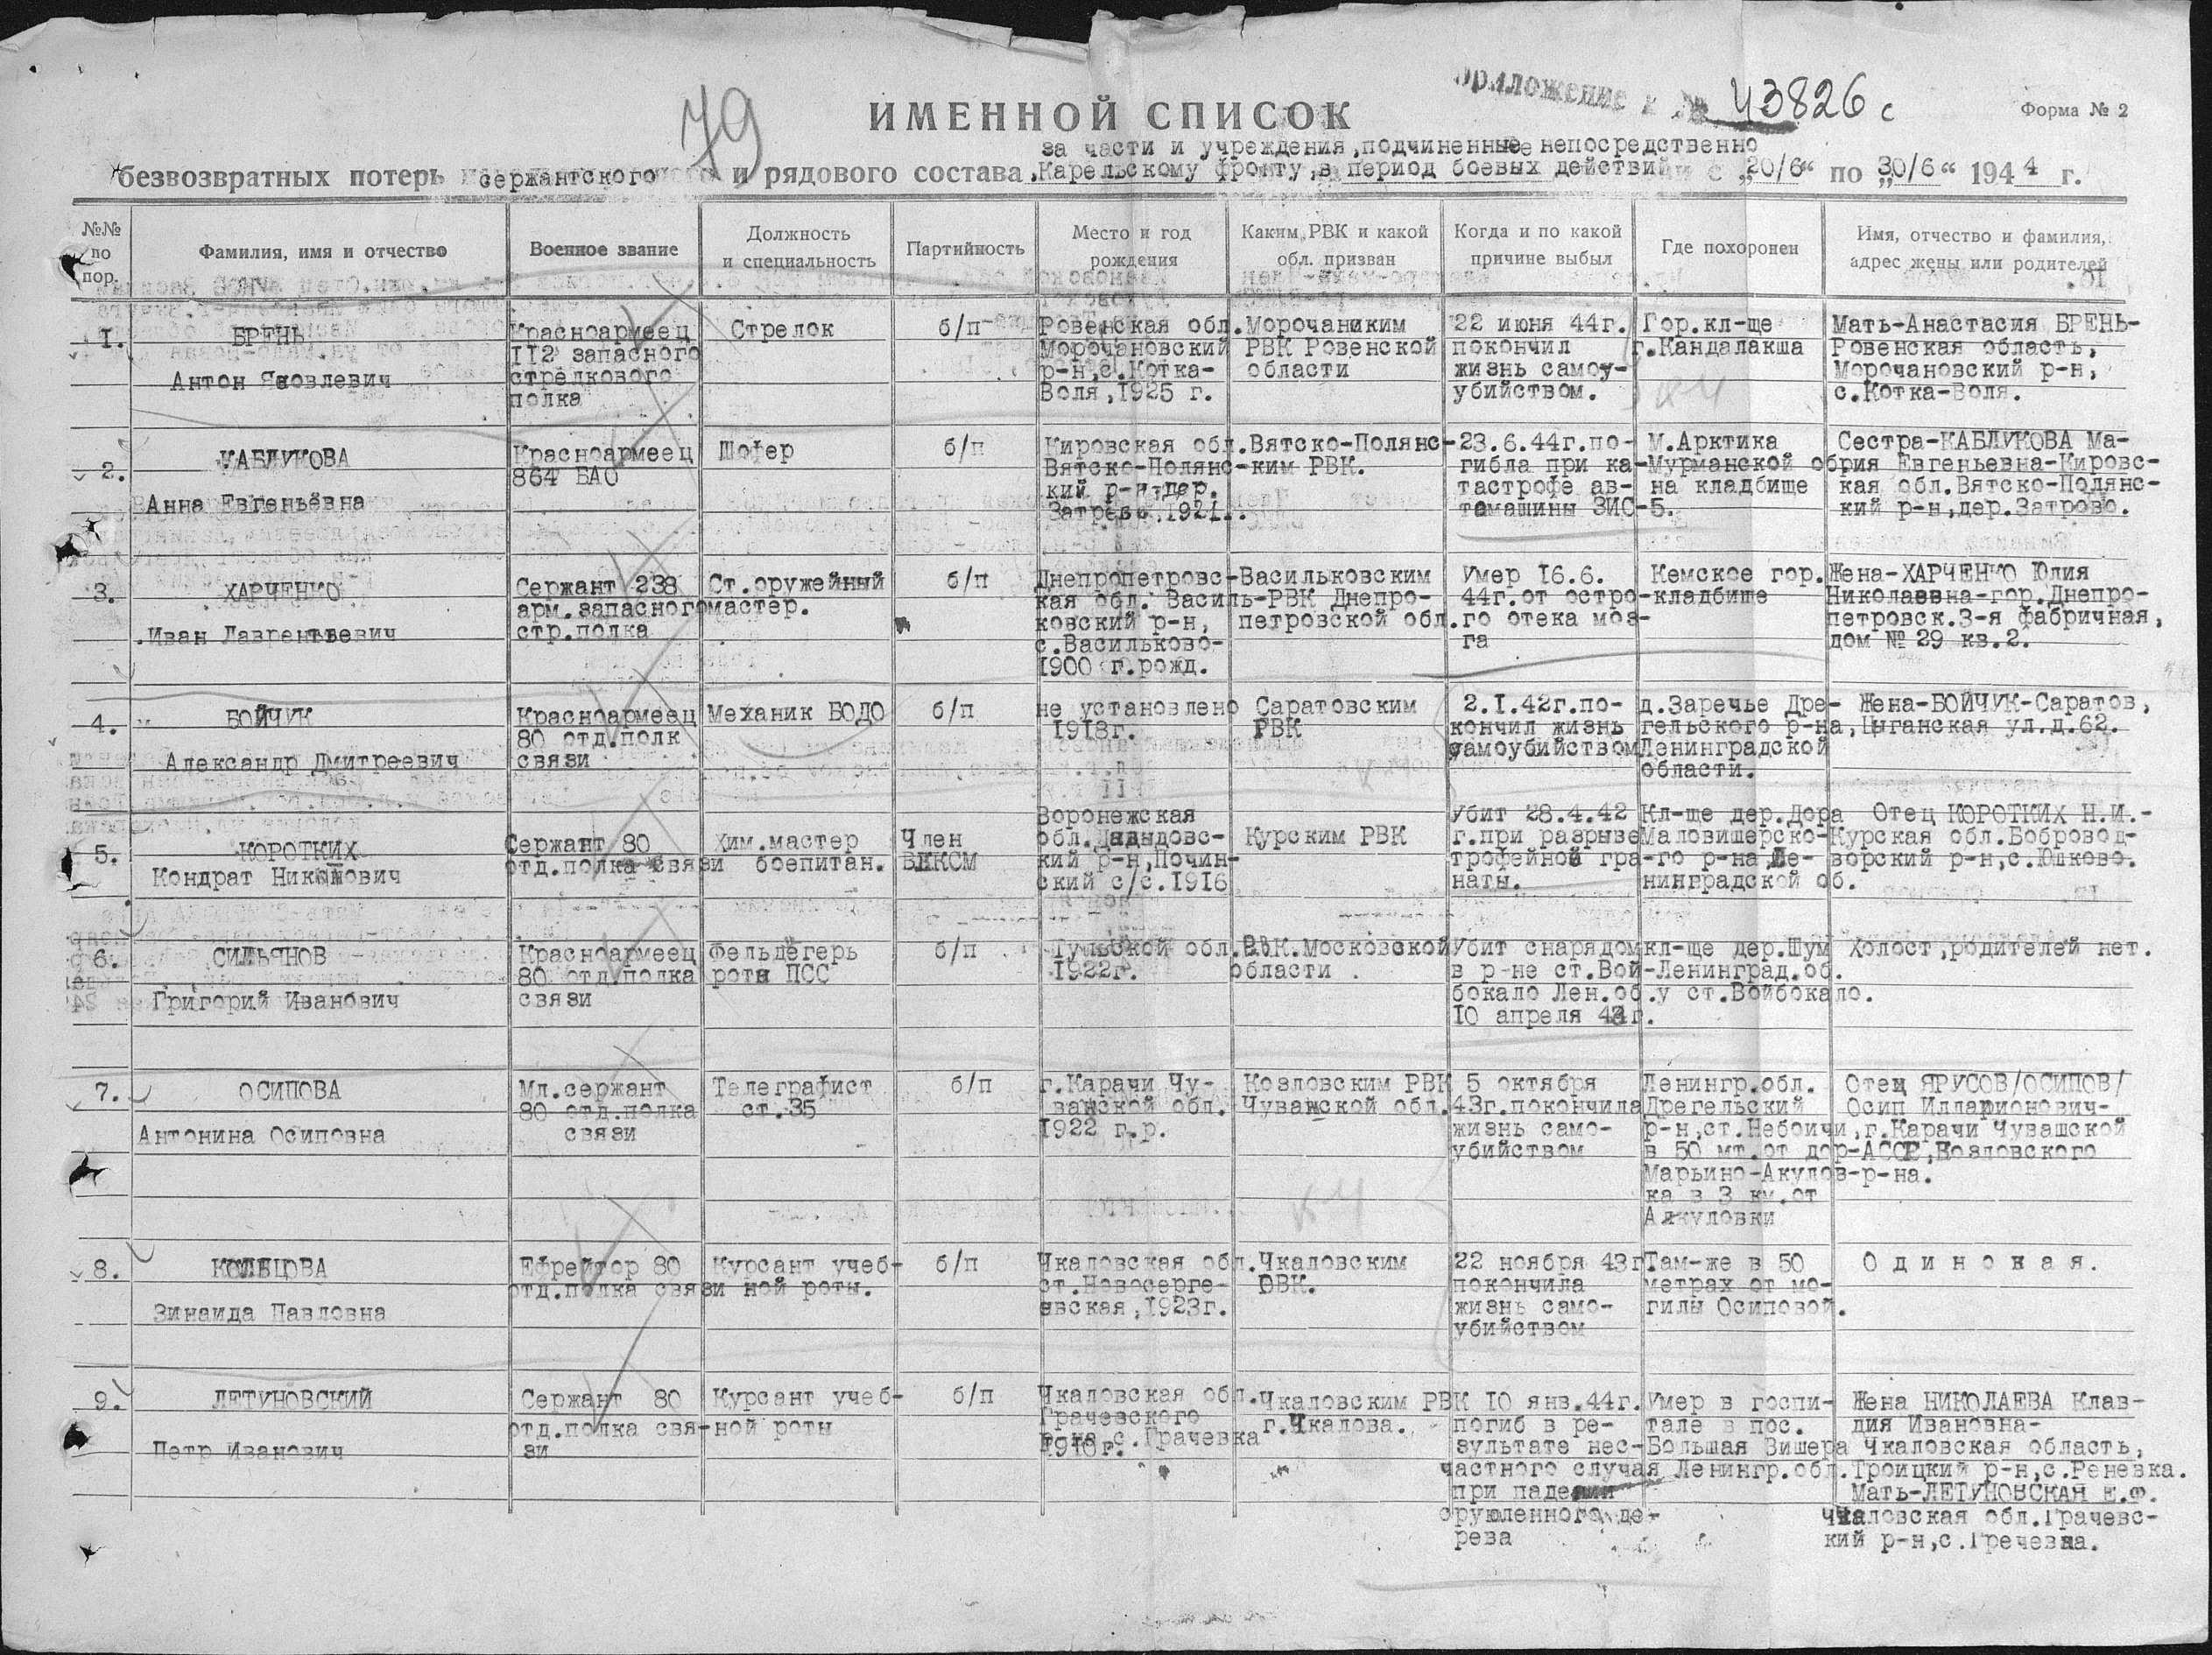 Приложение к №
43826 с
Форма № 2
79
ИМЕННОЙ СПИСОК
за части и учреждения,подчиненные непосредственно
безвозвратных потерь сержантского и рядового состава Карельскому фронту,в период боевых действий с „20/6“ по „30/6“ 1944 г.
№№ по пор.
Фамилия, имя и отчество
Военное звание
Должность и специальность
Партийность
Место и год рождения
Каким РВК и какой обл. призван
Когда и по какой причине выбыл
Где похоронен
Имя, отчество и фамилия, адрес жены или родителей
1.
БРЕНЬ
Антон Яковлевич
Красноармеец
112 запасного
стрелкового
полка
Стрелок
б/п
Ровенская обл.
Морочановский
р-н,с.Котка-
Воля,1925 г.
Морочаниким
РВК Ровенской
области
22 июня 44г.
покончил
жизнь самоу-
убийством.
Гор.кл-ще
г.Кандалакша
Мать-Анастасия БРЕНЬ-
Ровенская область,
Морочановский р-н,
с.Котка-Воля.
2.
КАБЛУКОВА
Анна Евгеньевна
Красноармеец
864 БАО
Шофер
б/п
Кировская обл.
Вятско-Полянс-
кий р-н,дер.
Затрево,1921.
Вятско-Полянс-
ким РВК.
23.6.44г.по-
гибла при ка-
тастрофе ав-
томашины ЗИС-5.
М.Арктика
Мурманской об
на кладбище
Сестра-КАБЛУКОВА Ма-
рия Евгеньевна-Кировс-
кая обл.Вятско-Полянс-
кий р-н,дер.Затрово.
3.
ХАРЧЕНКО
Иван Лаврентьевич
Сержант 238
арм.запасного
стр.полка
Ст.оружейный
мастер.
б/п
Днепропетровс-
кая обл. Василь-
ковский р-н,
с.Васильково-
1900 г.рожд.
Васильковским
РВК Днепро-
петровской обл.
Умер 16.6.
44г.от остро-
го отека моз-
га
Кемское гор.
кладбище
Жена-ХАРЧЕНКО Юлия
Николаевна-гор.Днепро-
петровск.3-я фабричная,
дом № 29 кв.2.
4.
БОЙЧУК
Александр Дмитреевич
Красноармеец
80 отд.полк
связи
Механик БОДО
б/п
не установлено
1918г.
Саратовским
РВК
2.1.42г.по-
кончил жизнь
самоубийством
д.Заречье Дре-
гельского р-на,
Ленинградской
области.
Жена-БОЙЧУК-Саратов,
Цыганская ул.д.62.
5.
КОРОТКИХ
Кондрат Никонович
Сержант 80
отд.полка связи
Хим.мастер
боепитан.
Член
ВЛКСМ
Воронежская
обл.Давыдовс-
кий р-н,Почин-
ский с/с.1916
Курским РВК
Убит 28.4.42
г.при разрыве
трофейной гра-
наты.
Кл-ще дер.Дора
Маловишерско-
го р-на,Ле-
нинградской об.
Отец КОРОТКИХ Н.И.-
Курская обл.Бобровод-
ворский р-н,с.Юшково.
6.
СИЛЬЯНОВ
Григорий Иванович
Красноармеец
80 отд.полка
связи
Фельдъегерь
роты ПСС
б/п
Тульской обл.
1922г.
РВК.Московской
области
Убит снарядом
в р-не ст.Вой-
бокало Лен.об.
10 апреля 43г.
кл-ще дер.Шум
Ленинград.об.
у ст.Войбокало.
Холост,родителей нет.
7.
ОСИПОВА
Антонина Осиповна
Мл.сержант
80 отд.полка
связи
Телеграфист
ст.35
б/п
г.Карачи Чу-
вашской обл.
1922 г.р.
Козловским РВК
Чувашской обл.
5 октября
43г.покончила
жизнь само-
убийством
Ленингр.обл.
Дрегельский
р-н,ст.Небоичи,
в 50 мт.от дор-
Марьино-Акулов-
ка в 3 км.от
Алкуловки
Отец ЯРУСОВ/ОСИПОВ/
Осип Илларионович-
г.Карачи Чувашской
АССР,Козловского
р-на.
8.
КОЛЬЦОВА
Зинаида Павловна
Ефрейтор 80
отд.полка связи
Курсант учеб-
ной роты.
б/п
Чкаловская обл.
ст.Новосерге-
евская,1923г.
Чкаловским
ОВК.
22 ноября 43г
покончила
жизнь само-
убийством
Там-же в 50
метрах от мо-
гилы Осиповой.
Одинокая.
9.
ЛЕТУНОВСКИЙ
Петр Иванович
Сержант 80
отд.полка свя-
зи
Курсант учеб-
ной роты
б/п
Чкаловская обл.
Грачевского
р-на с.Грачевка
1910г.
Чкаловским РВК
г.Чкалова.
10 янв.44г.
погиб в ре-
зультате нес-
частного случая
при падении
срубленного де-
рева
Умер в госпи-
тале в пос.
Большая Вишера
Ленингр.обл.
Жена НИКОЛАЕВА Клав-
дия Ивановна-
Чкаловская область,
Троицкий р-н,с.Реневка.
Мать-ЛЕТУНОВСКАЯ Е.Ф.
Чкаловская обл.Грачевс-
кий р-н,с.Гречевка.